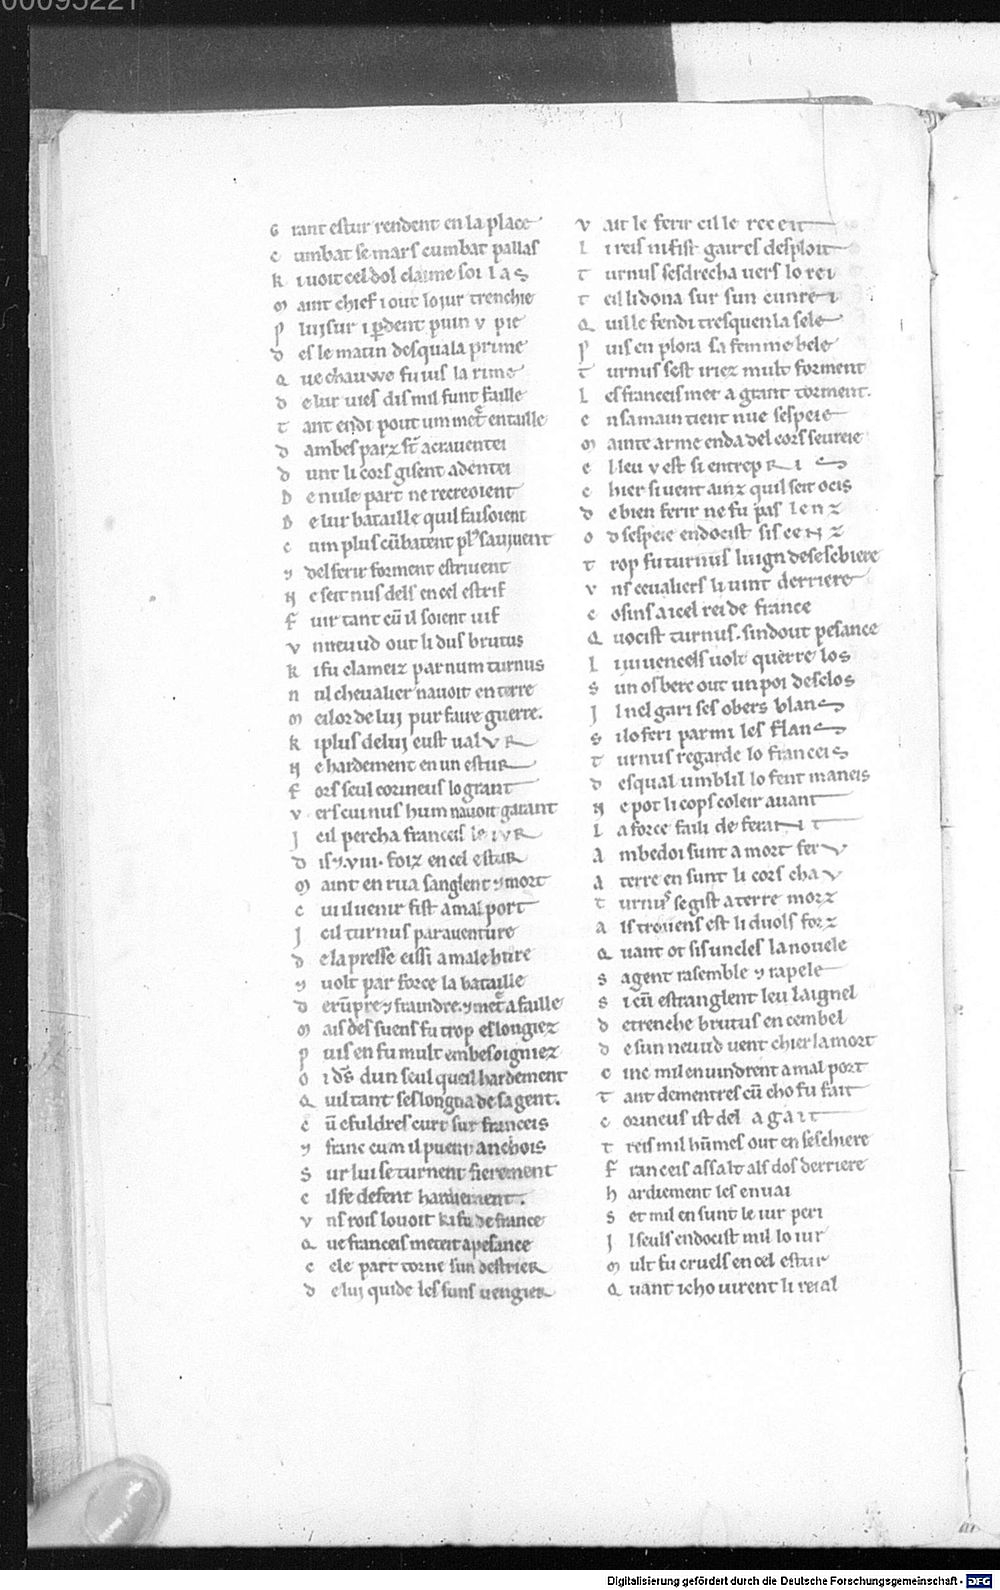 00095221
G rant estur rendent en la place
C umbat se mars cumbat pallas
K i uoit cel dol claime soi las
M aint chief i out lo iur trenchie
P lusur i pdent puin v pie
D es le matin desqua la prime
Q ue chauwe fu ius la rime
D e lur uies dis mil funt faille
T ant endi pout um met entaille
D ambes parz st acrauentei
D unt li cors gisent adentei
D e nule part ne recreoient
D e lur bataille quil faisoient
C um plus cūbatent pl's auiuent
⁊ del ferir forment estriuent
N e seit nus dels en cel estrif
F uir tant cū il soient uif
V n neuud out li dus brutus
K i fu clameiz par num turnus
N ul cheualier nauoit en terre
M eilor de lui pur faire guerre.
K i plus de lui eust ualvR
N e hardement en un estuR
F ors seul corineus lo grant
V ers cui nus hum nauoit garant
I cil percha franceis le ivR
D is ⁊ .viii. foiz en cel estuR
M aint en rua sanglent ⁊ mort
C ui il uenir fist a mal port
I cil turnus parauenture
D e la presse eissi a male hure
⁊ uolt par force la bataille
D erūpre ⁊ fraindre. ⁊ met a faille
M ais des suens fu trop eslongiez
P uis en fu mult embesoigniez
O i dōs dun seul queil hardement
Q uil tant seslongna de sa gent.
C ū esfuldres curt sur franceis
⁊ franc cum il puent anchois
S ur lui se turnent fierement
C il se defent hardiement.
V ns rois lo uoit ki fu de france
Q ue franceis meteit a pesance
C ele part torne sun destrieR
D e lui quide les suns uengieR
V ait le ferir cil le receit
L i reis ni fist gaires desploit
T urnus sesdrecha uers lo rei
T cil li dona sur sun cunrei
Q uil le fendi tresquen la sele
P uis en plora sa femme bele
T urnus sest iriez mult forment
L es franceis met a grant torment.
E n sa main tient nue sespeie
M ainte arme enda del cors seureie
E l leu v est si entrepRis
C hier si uent ainz quil seit ocis
D e bien ferir ne fu pas lenz
O d sespeie en docist sis cenz
T rop fu turnus luign de se schiere
V ns ceualiers li uint derriere
C osins a icel rei de france
Q uocist turnus. sin dout pesance
I uuencels uolt querre los
S un osberc out un poi desclos
I l nel gari ses obers blans
S i lo feri parmi les flans
T urnus regarde lo franceis
D esqual umblil lo fent maneis
N e pot li cops coleir auant
L a force faili de ferant
A mbedoi sunt a mort feru
A terre en sunt li cors chav
T urnus se gist a terre morz
A ls troiiens est li duols forz
Q uant ot sis uncles la nouele
S a gent rasemble ⁊ rapele
S i cū estranglent leu laignel
D etrenche brutus en cembel
D e sun neuud uent chier la mort
C inc mil en uindrent a mal port
T ant dementres cū cho fu fait
C orineus ist del agait
T reis mil hūmes out en seschiere
F ranceis assalt als dos derriere
H ardiement les enuai
S et mil en sunt le iur peri
I l seuls en docist mil lo iur
M ult fu cruels en cel estur
Q uant icho uirent li reial
Digitalisierung gefördert durch die Deutsche Forschungsgemeinschaft - DFG